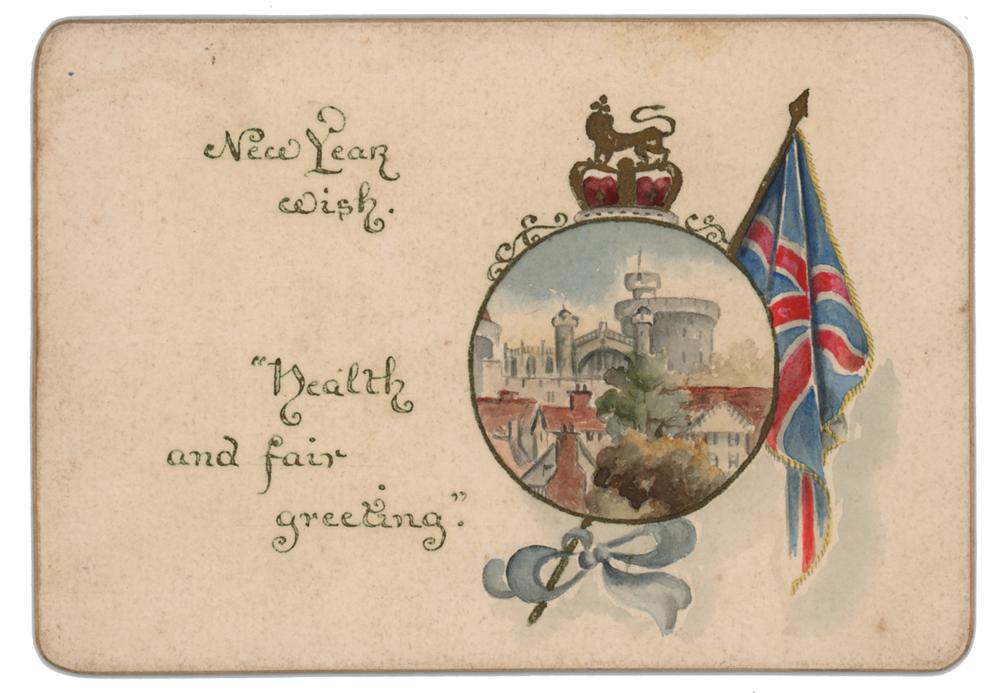 New Year
wish.
"Health
and fair
greeting".